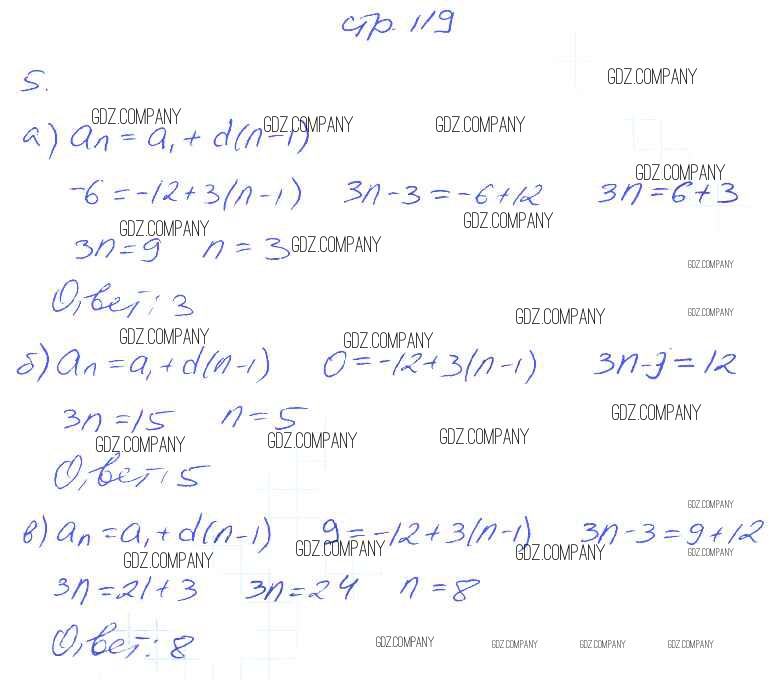 стр. 119
5.
GDZ.COMPANY
GDZ.COMPANY GDZ.COMPANY GDZ.COMPANY
а) aₙ = a₁ + d(n-1)
GDZ.COMPANY
-6 = -12 + 3(n-1) 3n-3 = -6+12 3n = 6+3
GDZ.COMPANY GDZ.COMPANY
3n = 9 n = 3 GDZ.COMPANY
GDZ.COMPANY
Ответ: 3
GDZ.COMPANY GDZ.COMPANY
GDZ.COMPANY GDZ.COMPANY
б) aₙ = a₁ + d(n-1) 0 = -12 + 3(n-1) 3n-3 = 12
3n = 15 n = 5 GDZ.COMPANY
GDZ.COMPANY GDZ.COMPANY GDZ.COMPANY
Ответ: 5
GDZ.COMPANY
в) aₙ = a₁ + d(n-1) 9 = -12 + 3(n-1) 3n-3 = 9+12
GDZ.COMPANY GDZ.COMPANY GDZ.COMPANY GDZ.COMPANY
3n = 21+3 3n = 24 n = 8
Ответ: 8
GDZ.COMPANY GDZ.COMPANY GDZ.COMPANY GDZ.COMPANY